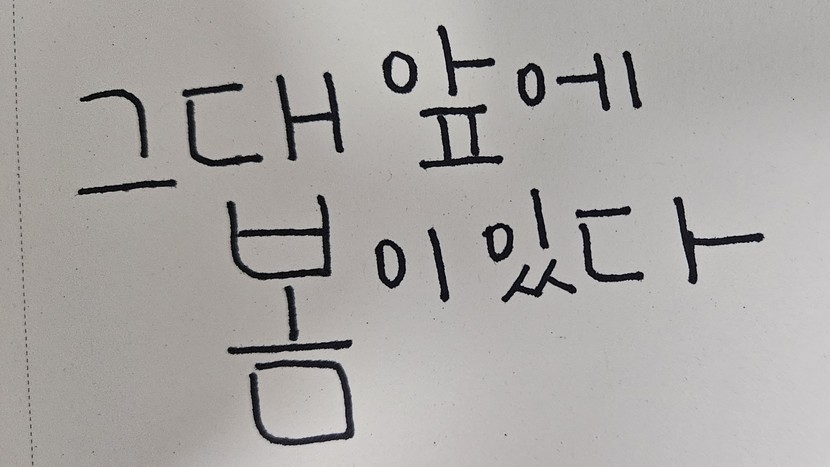 그대 앞에
봄이 있다